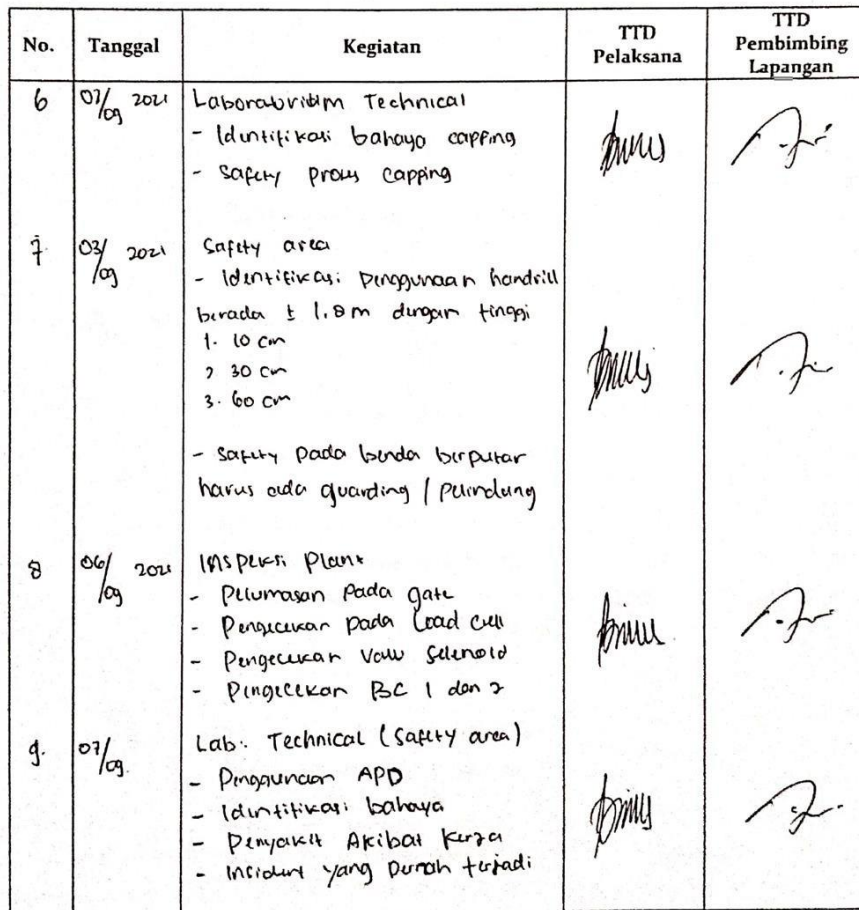 No. Tanggal Kegiatan TTD Pelaksana TTD Pembimbing Lapangan
6 02/09 2021 Laboraturium Technical
- Identifikasi bahaya capping
- Safety proses capping
7 03/09 2021 Safety area
- Identifikasi penggunaan handrill
berada ± 1.8 m dengan tinggi
1. 10 cm
2 30 cm
3. 60 cm
- Safety pada benda berputar
harus ada guarding / pelindung
8 06/09 2021 Inspeksi Plant
- Pelumasan pada gate
- Pengecekan pada Load cell
- Pengecekan valve selenoid
- Pengecekan BC 1 dan 2
9. 07/09. Lab. Technical (Safety area)
- Penggunaan APD
- Identifikasi bahaya
- Penyakit Akibat Kerja
- Insident yang pernah terjadi